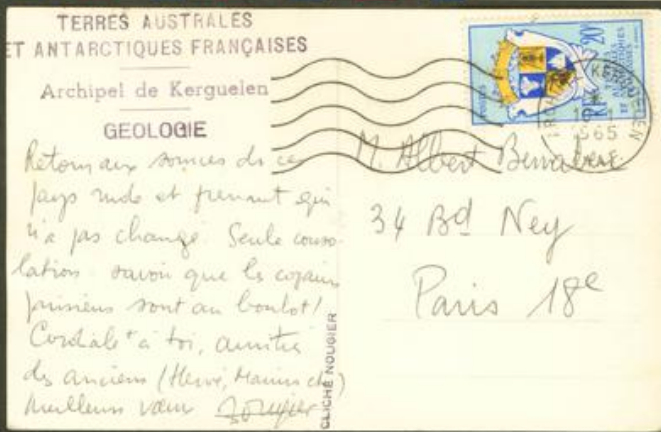 TERRES AUSTRALES
ET ANTARCTIQUES FRANÇAISES
Archipel de Kerguelen
GEOLOGIE
Retour aux sources de ce
pays rude et prenant qui
n'a pas changé. Seule conso-
lation savoir que les copains
parisiens sont au boulot!
Cordialt à toi, amitiés
des anciens (Hervé, Manins
meilleurs vœux Nougier
CLICHÉ NOUGIER
20F
KERGUELEN
1965
M. Albert
34 Bd Ney
Paris 18e